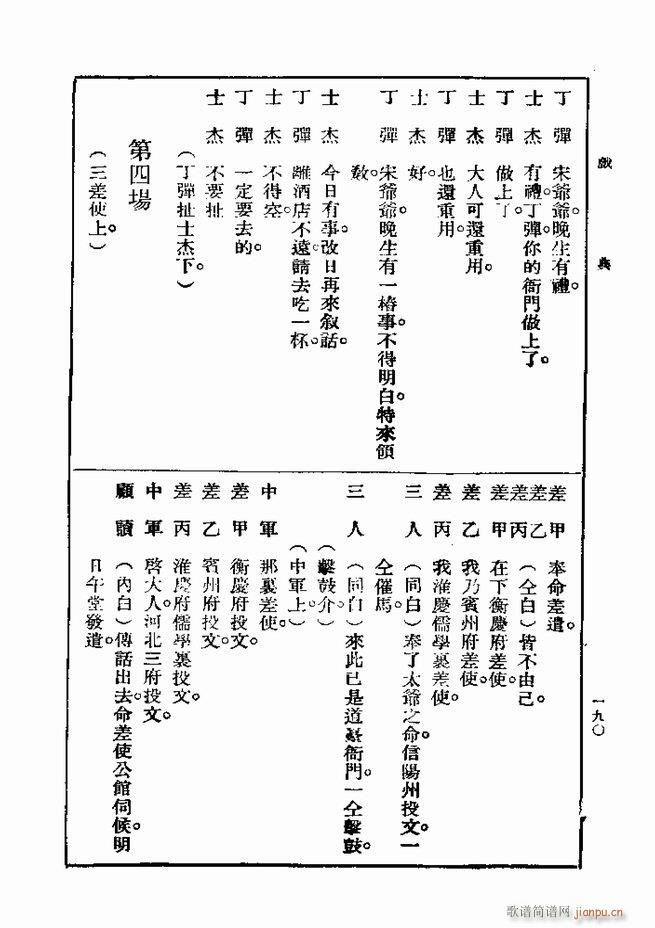 戲典
丁彈 宋爺爺晚生有禮。
士杰 有禮丁彈你的衙門做上了。
丁彈 做上了。
士杰 大人可還重用。
丁彈 也還重用。
士杰 好。
丁彈 宋爺爺晚生有一樁事不得明白。特來領
教。
士杰 今日有事改日再來叙話。
丁彈 離酒店不遠請去吃一杯。
士杰 不得空。
丁彈 一定要去的。
士杰 不要扯。
(丁彈扯士杰下。)
第四場
(三差使上。)
差甲 奉命差遣。
差乙 差丙 (仝白)皆不由己。
差甲 在下衡慶府差使。
差乙 我乃賓州府差使。
差丙 我淮慶儒學裏差使。
三人 (同白)奉了太爺之命信陽州投文。一
仝催馬。
(擊鼓介)
三人 (同白)來此已是道臺衙門。一仝擊鼓。
(中軍上。)
中軍 那裏差使。
差甲 衡慶府投文。
差乙 賓州府投文。
差丙 淮慶府儒學裏投文。
中軍 啓大人。河北三府投文。
顧讀 (內白)傳話出去。命差使公館伺候。明
日午堂發遣。
一九〇
歌谱简谱网 jianpu.cn